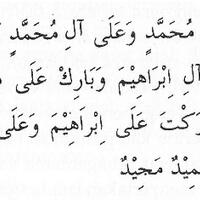 مُحَمَّدٍ وَعَلَى آلِ مُحَمَّدٍ
آلِ اِبْرَاهِيْمَ وَبَارِكْ عَلَى
عَلَى اِبْرَاهِيْمَ وَعَلَى
مَجِيْدٌ